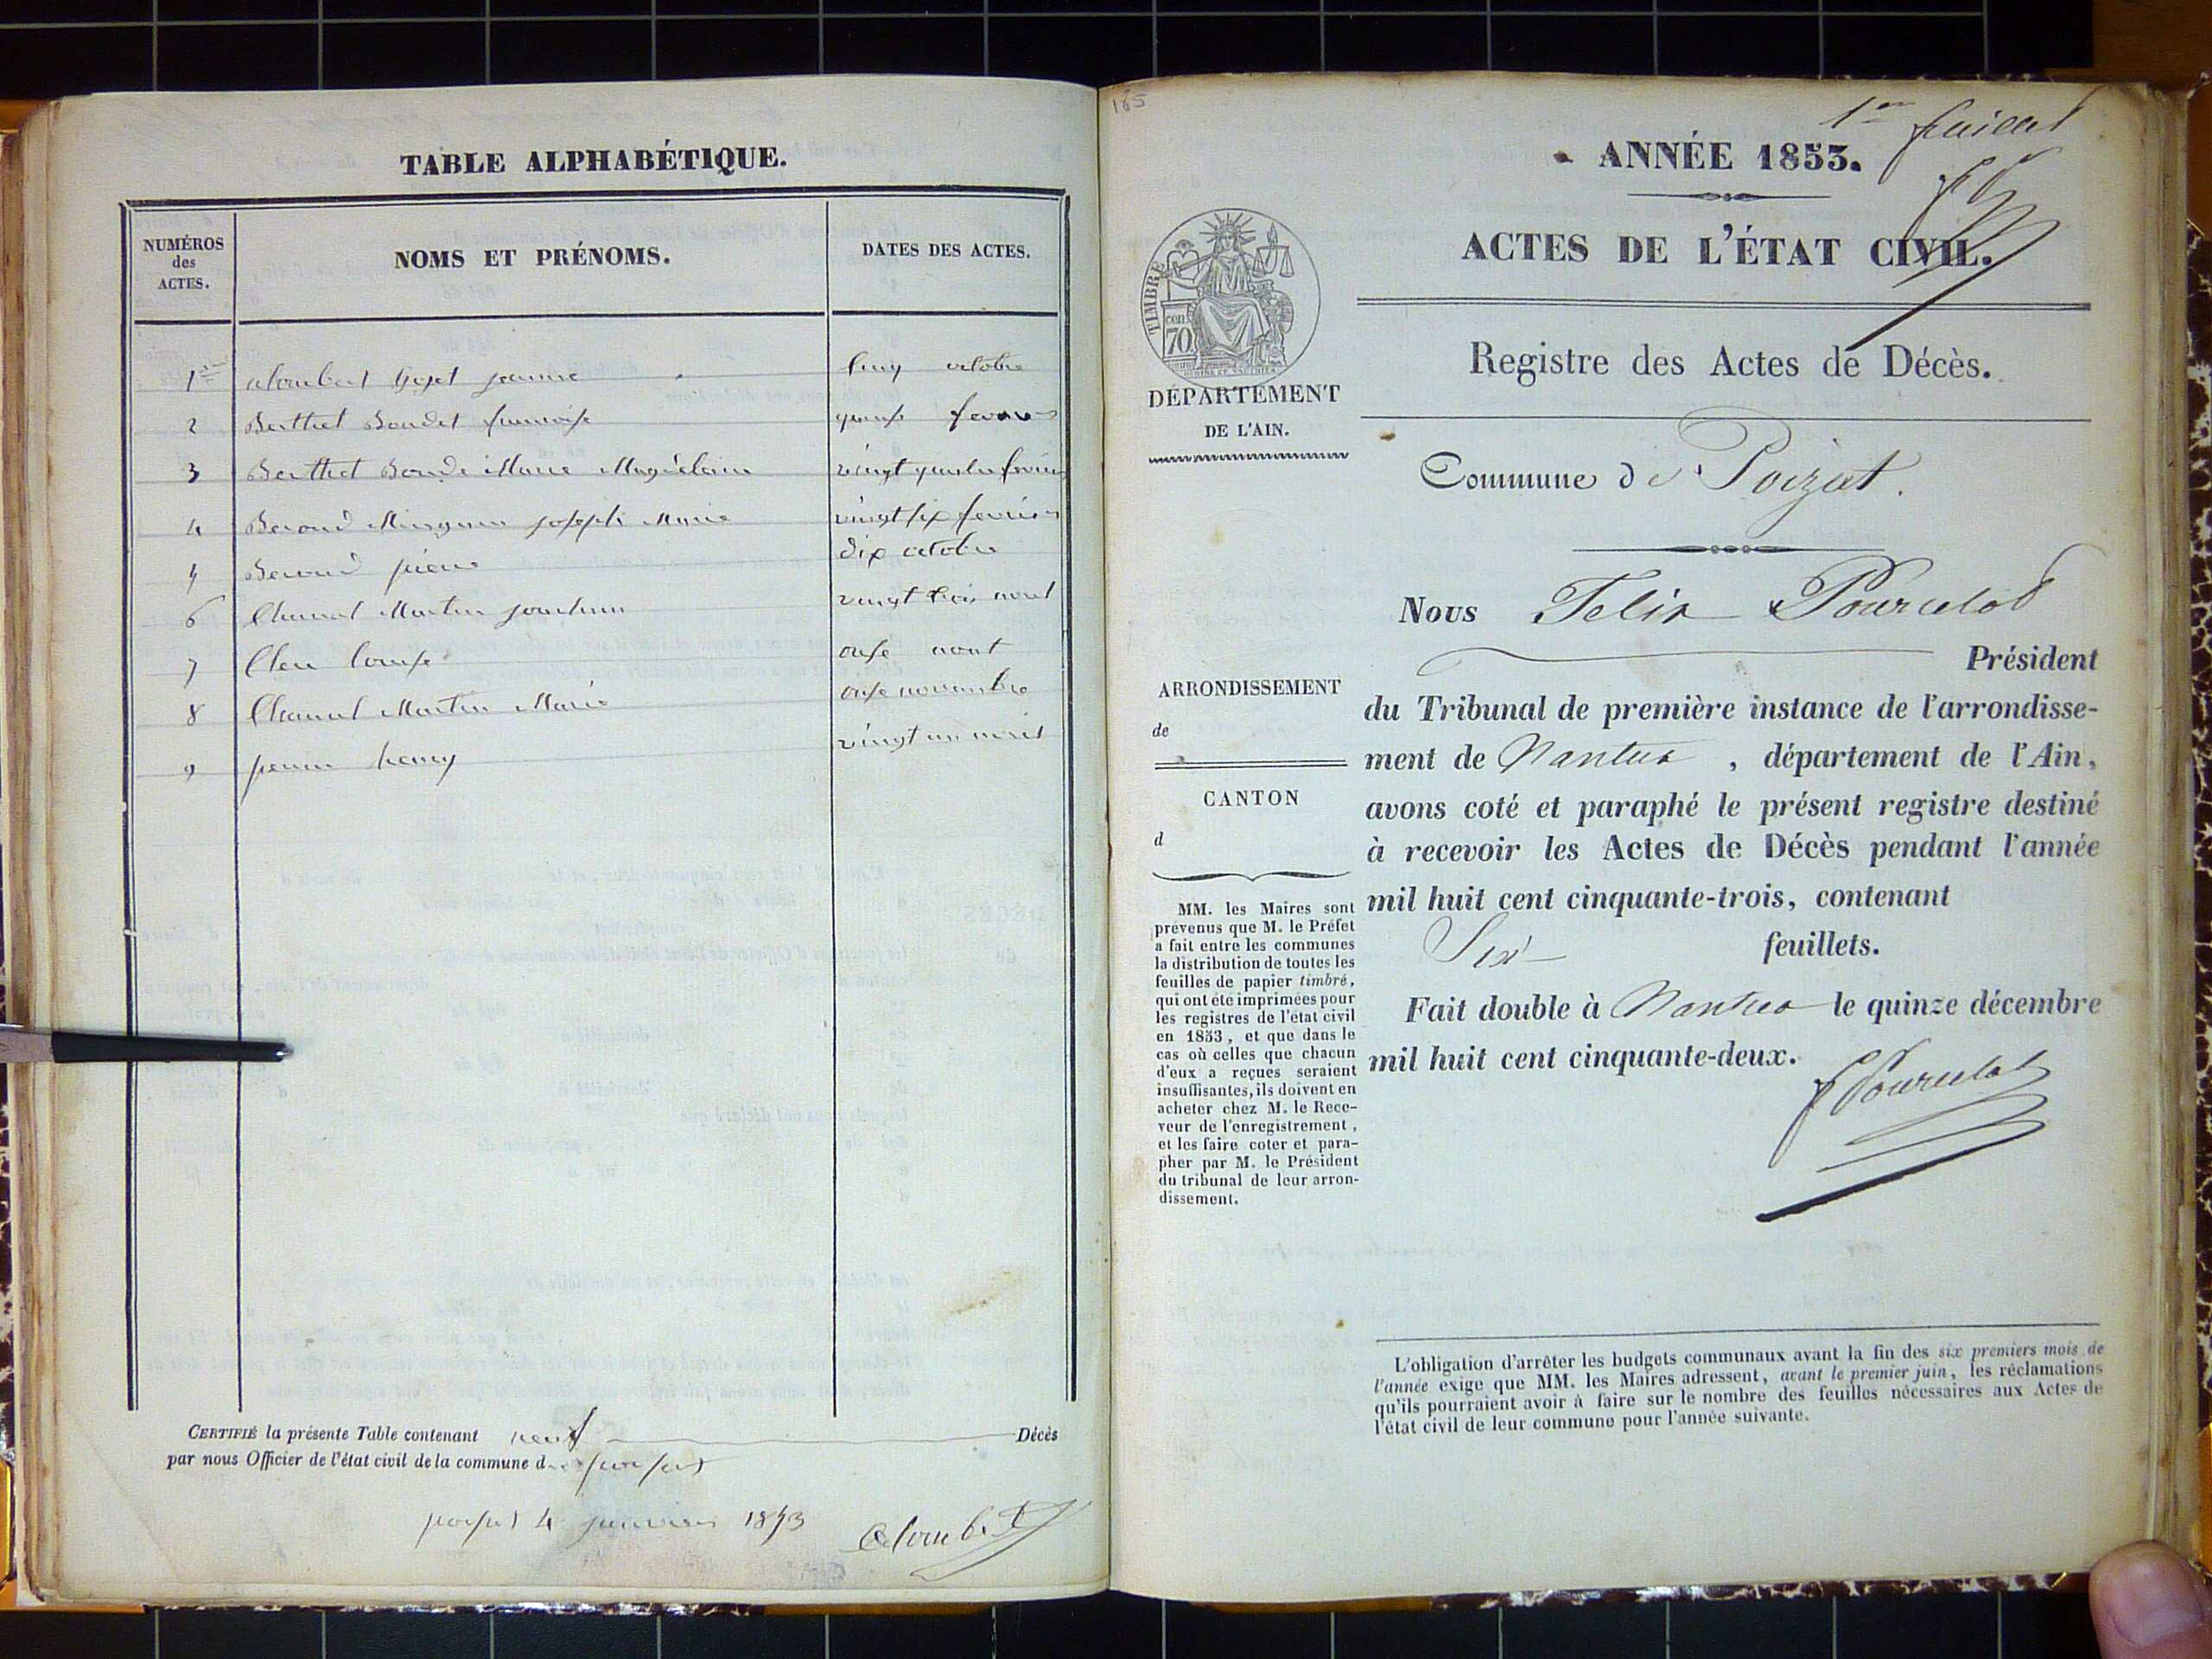 TABLE ALPHABÉTIQUE.
NUMÉROS des ACTES.
NOMS ET PRÉNOMS.
DATES DES ACTES.
1 jeanne octobre
2 Berthet Bondet
3 Berthet Marie vingt quatre
4 Beroud joseph Marie vingt six fevrier
5 Beroud dix octobre
6 Martin vingt trois aout
7 onse aout
8 Martin Marie onse novembre
9 henry vingt un
CERTIFIÉ la présente Table contenant neuf Décès
par nous Officier de l'état civil de la commune d
4 janvier 1853
185
1er feuillet
ANNÉE 1853.
ACTES DE L'ÉTAT CIVIL.
TIMBRE
cen.
70
DÉPARTEMENT
DE L'AIN.
Registre des Actes de Décès.
Commune de Poizat.
Nous Felix Pourcelot
Président
du Tribunal de première instance de l'arrondisse-
ment de Nantua, département de l'Ain,
avons coté et paraphé le présent registre destiné
à recevoir les Actes de Décès pendant l'année
mil huit cent cinquante-trois, contenant
Six feuillets.
Fait double à Nantua le quinze décembre
mil huit cent cinquante-deux.
F Pourcelot
ARRONDISSEMENT
de
CANTON
d
MM. les Maires sont
prévenus que M. le Préfet
a fait entre les communes
la distribution de toutes les
feuilles de papier timbré,
qui ont été imprimées pour
les registres de l'état civil
en 1853, et que dans le
cas où celles que chacun
d'eux a reçues seraient
insuffisantes, ils doivent en
acheter chez M. le Rece-
veur de l'enregistrement,
et les faire coter et para-
pher par M. le Président
du tribunal de leur arron-
dissement.
L'obligation d'arrêter les budgets communaux avant la fin des six premiers mois de
l'année exige que MM. les Maires adressent, avant le premier juin, les réclamations
qu'ils pourraient avoir à faire sur le nombre des feuilles nécessaires aux Actes de
l'état civil de leur commune pour l'année suivante.